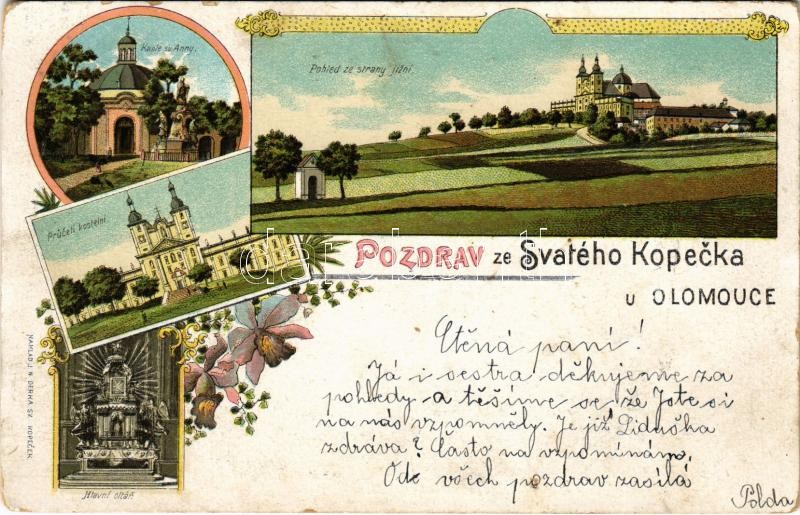 Kaple sv. Anny.
Pohled ze strany jižní
Průčelí kostelní.
POZDRAV ze Svatého Kopečka
u OLOMOUCE
NÁKLAD J. N. DERKA, SV. KOPEČEK.
Hlavní oltář.
Ctěná paní!
Já i sestra děkujeme za
pohledy a těšíme se že Jste si
na nás vzpomněly. Je již Liduška
zdráva? Často na vzpomínám.
Ode všech pozdrav zasílá
Polda